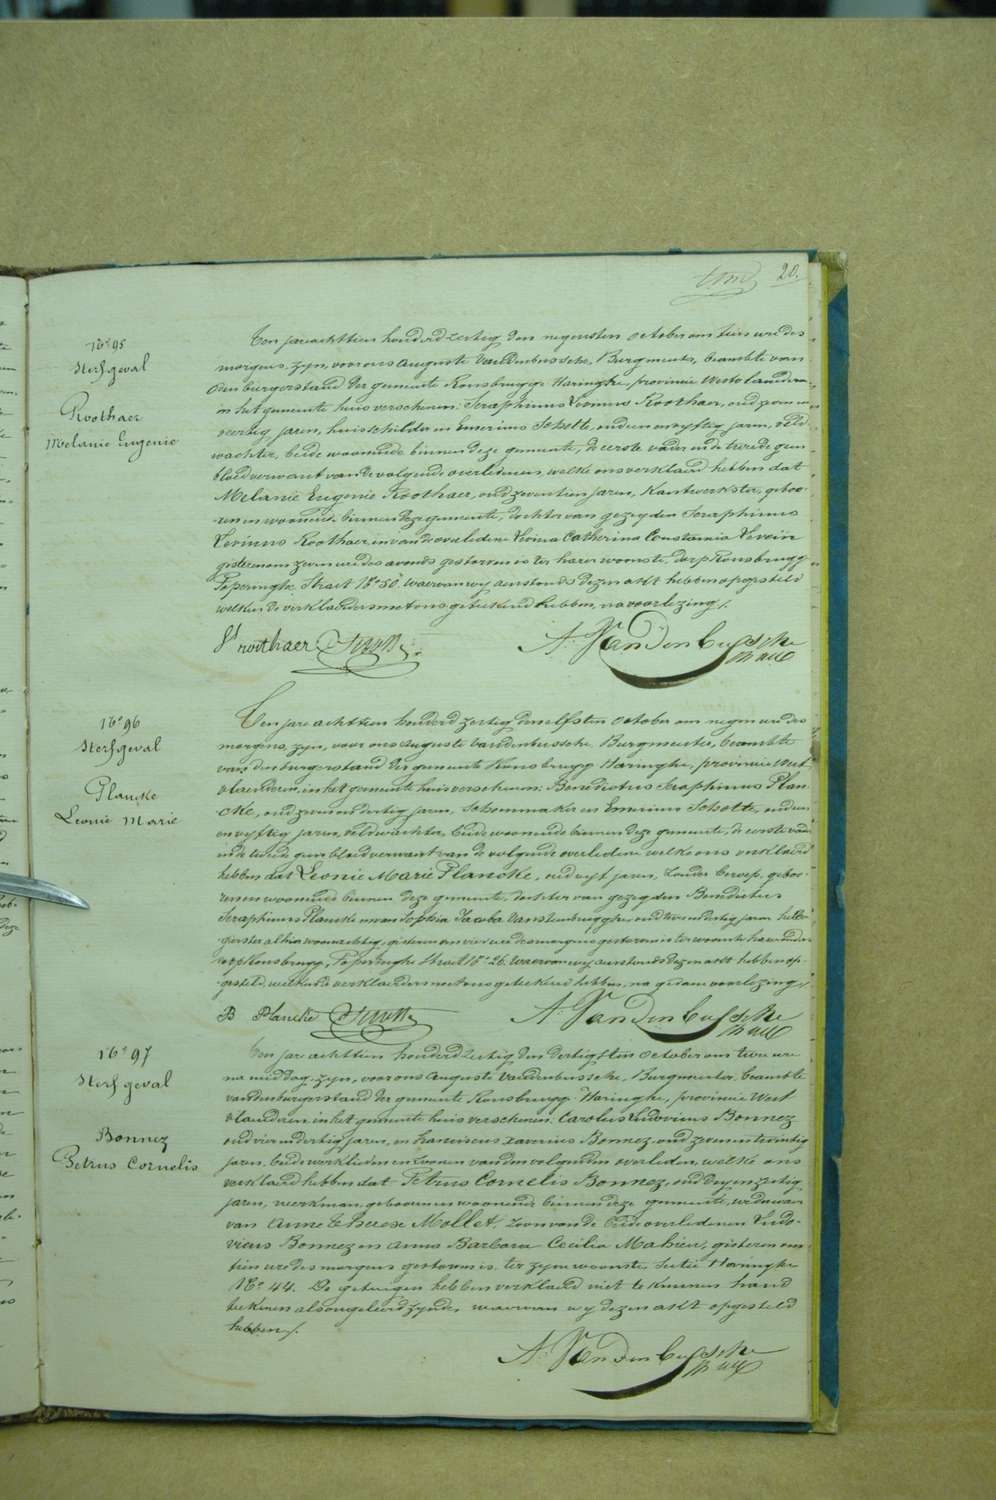 20.
N° 95
Sterfgeval
Roothaer
Melanie Eugenie
Ten jare achttien honderd zestig den negensten october om tien ure des
morgens, zyn, voor ons Auguste Vandenbussche, Burgmeester, beambte van
den burgerstand der gemeente Rousbrugge Haringhe, provincie Westvlaanderen
in het gemeente huis verschenen: Seraphinus Livinus Roothaer, oud
veertig jaren, huisschilder en Emerinus Scholte, oud een en vyftig jaren, veld
wachter, beide woonende binnen deze gemeente, de eerste vader en de tweede geen
bloedverwant van de volgende overledenen, welke ons verklaerd hebben dat
Melanie Eugenie Roothaer, oud zeventien jaren, Kantwerkster, geboo-
ren en woonende binnen deze gemeente, dochter van gezegden Seraphinus
Livinus Roothaer en van de overledene Catherina Constantia
gisteren om zeven ure des avonds gestorven is ter harer woonste, dorp Rousbrugge
Poperinghe Straet N° 50, waervan wy aenstonds dezen akt hebben opgesteld
welken de verklaerders met ons geteekend hebben, na voorlezing /.
St roothaer E Scholte A. Vandenbussche
N° 96
Sterfgeval
Plancke
Leonie Marie
Ten jare achttien honderd zestig den elfsten October om negen ure des
morgens, zyn, voor ons Auguste Vandenbussche, Burgmeester, beambte
van den burgerstand der gemeente Rousbrugge Haringhe, provincie West
vlaenderen, in het gemeente huis verschenen: Benedictus Seraphinus Plan
cke, oud en dertig jaren, Schoenmaker en Emerinus Scholte, oud een
en vyftig jaren, veldwachter, beide woonende binnen deze gemeente, de eerste vader
en de tweede geen bloedverwant van de volgende overledene welke ons verklaerd
hebben dat Leonie Marie Plancke, oud vyf jaren, zonder beroep, geboo-
ren en woonende binnen deze gemeente, dochter van gezegden Benedictus
Seraphinus Plancke en van Sophia Jacoba Vansteenbrugghe, oud en dertig jaren
alhier woonachtig, gisteren om vier ure des morgens gestorven is ter woonste harer ouders
dorp Rousbrugge, Poperinghe Straet N° 26. Waervan wy aenstonds dezen akt hebben op-
gesteld, welke de verklaerders met ons geteekend hebben, na gedane voorlezing /.
B Plancke E Scholte A. Vandenbussche
N° 97
Sterfgeval
Bonnez
Petrus Cornelis
Ten jare achttien honderd zestig den dertigsten October om twee ure
na middag, zyn, voor ons Auguste Vandenbussche, Burgmeester, beambte
van den burgerstand der gemeente Rousbrugge Haringhe, provincie West
vlaanderen, in het gemeente huis verschenen: Carolus Ludovicus Bonnez
oud vier en dertig jaren, en Franciscus Xaverius Bonnez, oud zeven en twintig
jaren, beide werklieden en zoonen van den volgenden overleden, welke ons
verklaerd hebben dat Petrus Cornelis Bonnez, oud dry en zestig
jaren, werkman, geboren en woonende binnen deze gemeente, weduwaer
van Anne Therese Mollet, zoon van de beide overledenen Ludo-
vicus Bonnez en Anna Barbara Cecilia Mahieu, gisteren om
tien ure des morgens gestorven is, ter zyner woonste, Sectie Haringhe
N° 44. De getuigen hebben verklaerd niet te kunnen hand
teekenen als ongeleerd zynde, waervan wy dezen akt opgesteld
hebben /.
A. Vandenbussche